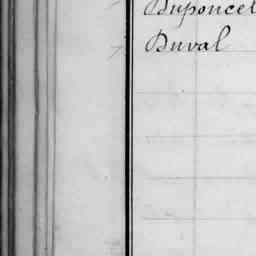 Duponcel
Duval